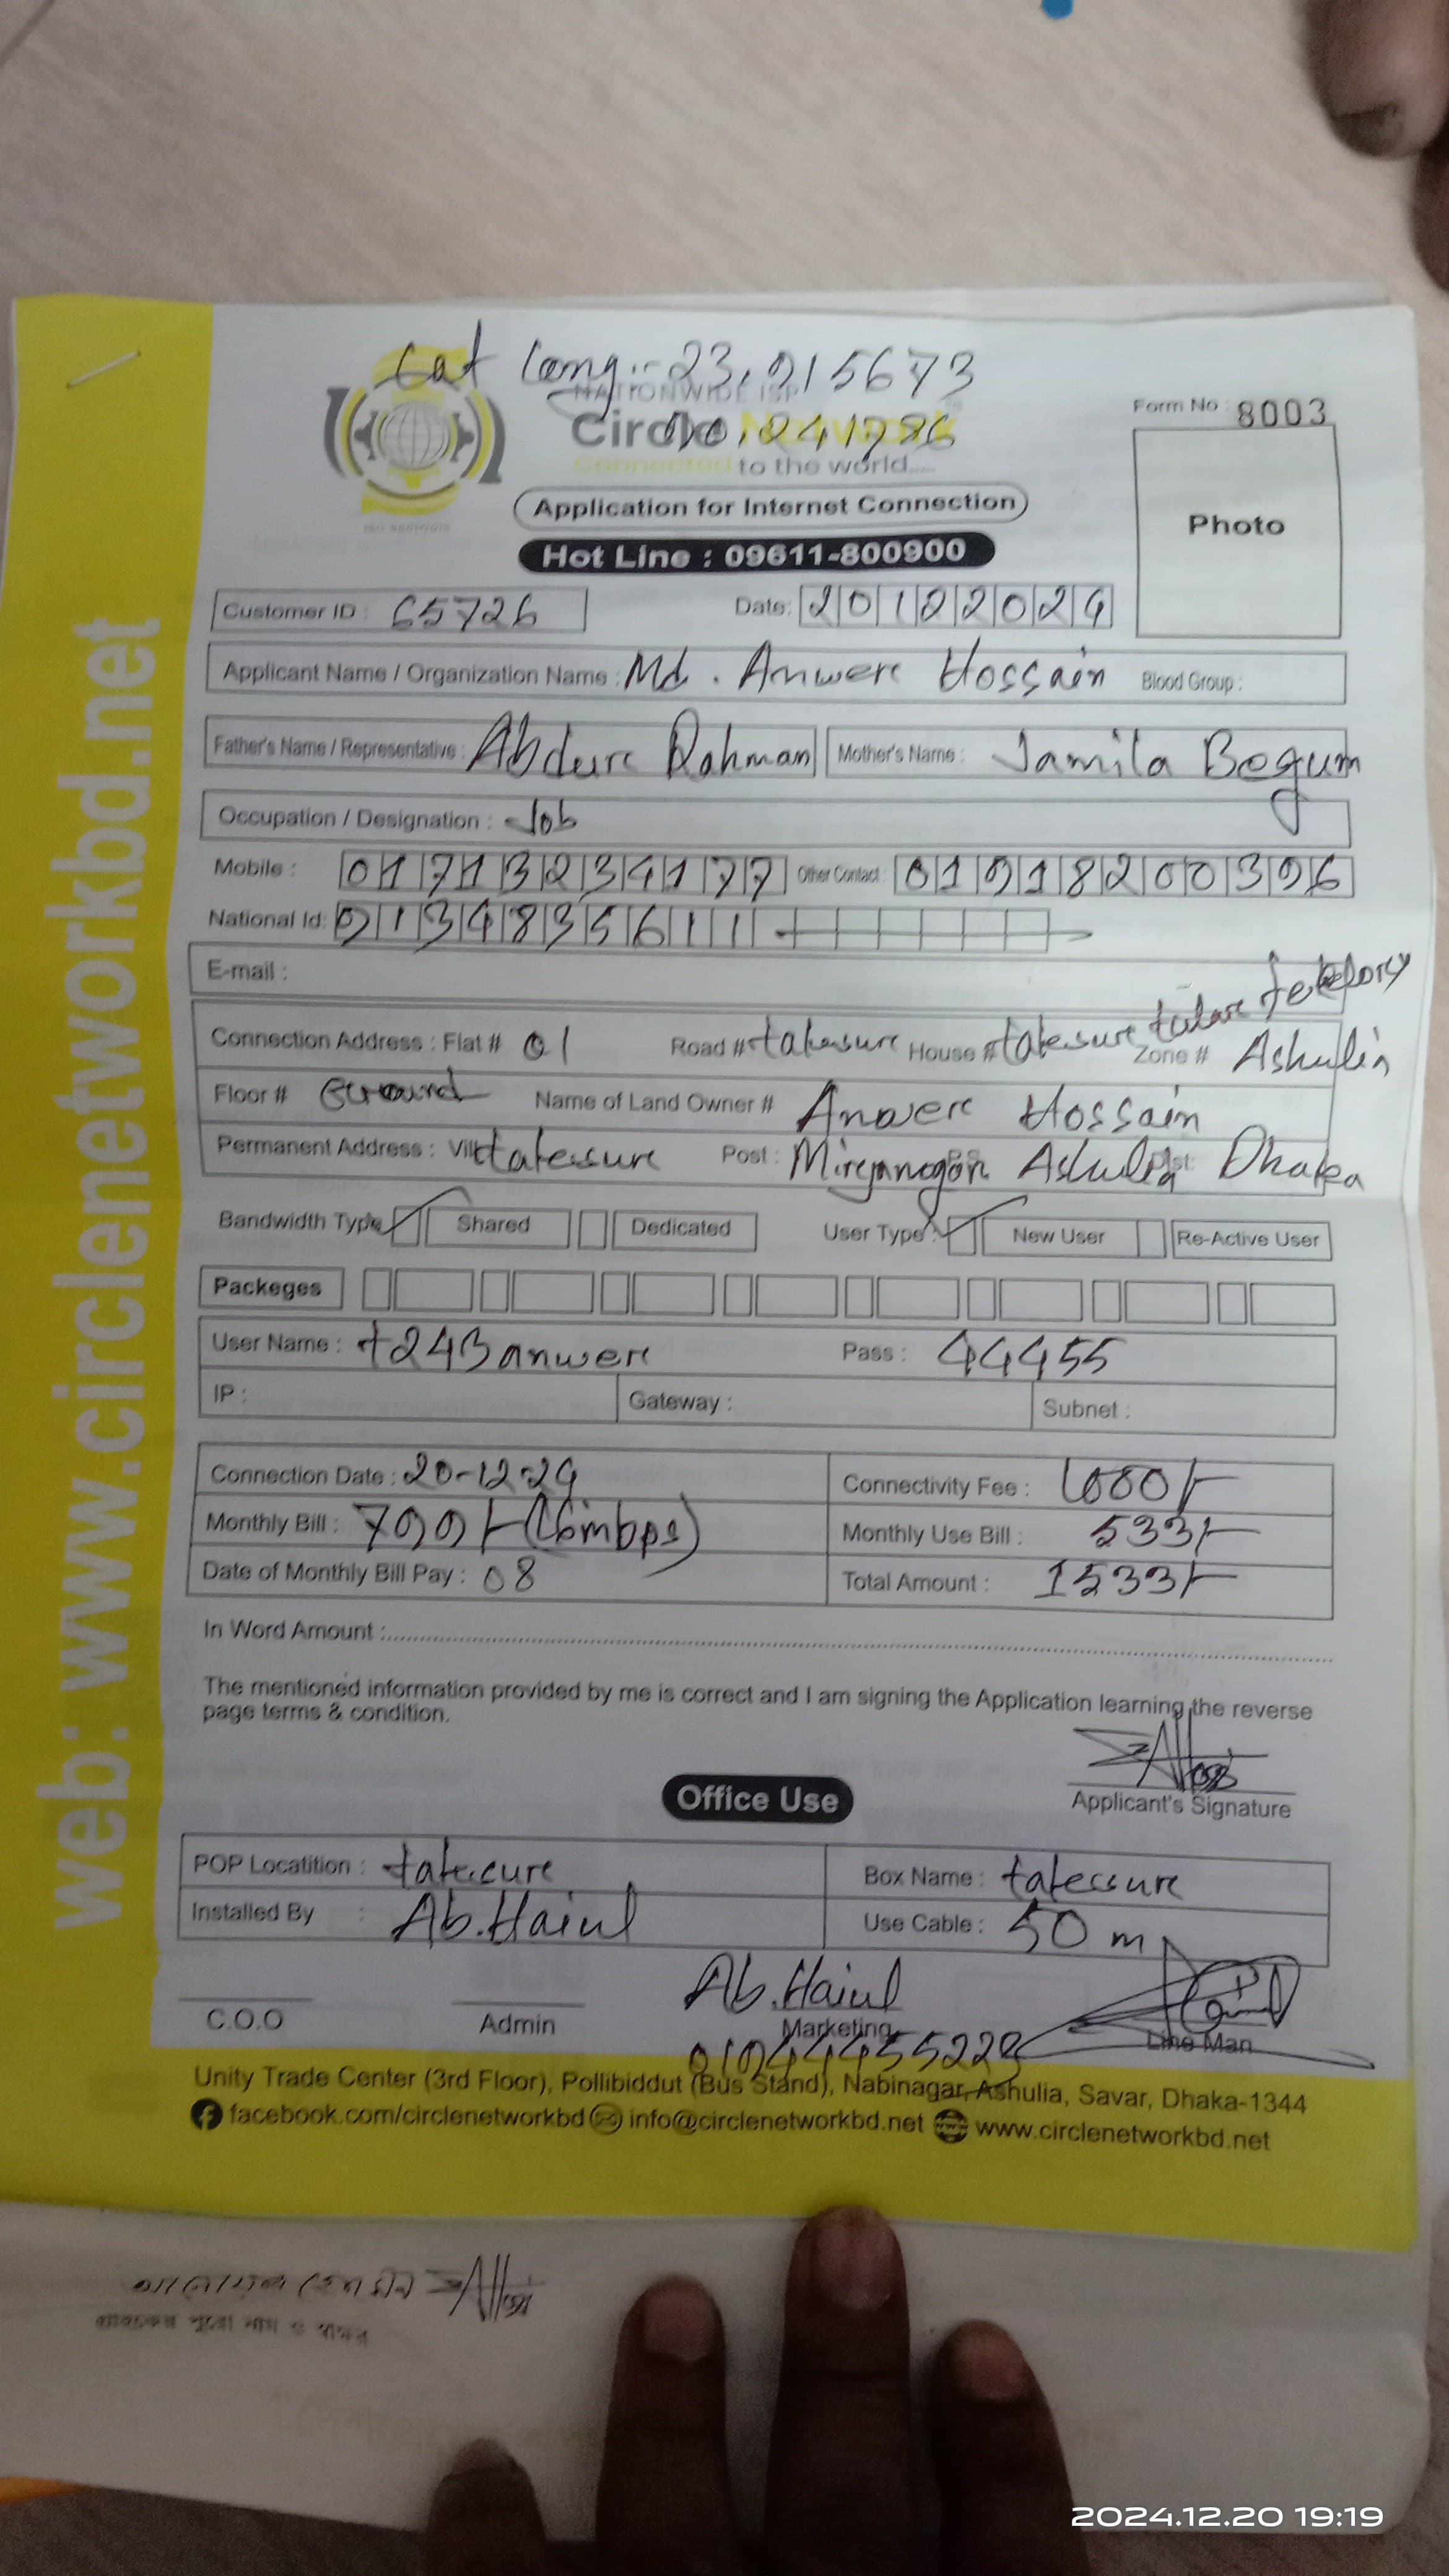 Lat Long:- 23.915673
90.241786
NATIONWIDE ISP
Circle Network
Connected to the world.....
Form No : 8003
Photo
Application for Internet Connection
Hot Line : 09611-800900
Customer ID : 65726 Date: 20122024
Applicant Name / Organization Name : Md. Anwere Hossain Blood Group :
Father's Name / Representative : Abdure Rahman Mother's Name : Jamila Begum
Occupation / Designation : Job
Mobile : 01713234177 Other Contact : 01918200396
National Id: 9134835611
E-mail :
Connection Address : Flat # 01 Road # House # Zone # Ashulia
Floor # Ground Name of Land Owner # Anwere Hossain
Permanent Address : Vill: Post : P.S: Ashulia Dist: Dhaka
Bandwidth Type : Shared Dedicated User Type : New User Re-Active User
Packeges
User Name : t243anwere Pass : 44455
IP : Gateway : Subnet :
Connection Date : 20-12-24 Connectivity Fee : 1000/-
Monthly Bill : 799/- (16mbps) Monthly Use Bill : 533/-
Date of Monthly Bill Pay : 08 Total Amount : 1533/-
In Word Amount :
The mentioned information provided by me is correct and I am signing the Application learning the reverse
page terms & condition.
Applicant's Signature
Office Use
POP Locatition : Box Name :
Installed By : Ab. Haiul Use Cable : 50 m
Ab. Haiul
C.O.O Admin Marketing Line Man
01944455223
Unity Trade Center (3rd Floor), Pollibiddut (Bus Stand), Nabinagar, Ashulia, Savar, Dhaka-1344
facebook.com/circlenetworkbd info@circlenetworkbd.net www.circlenetworkbd.net
web: www.circlenetworkbd.net
গ্রাহকের পুরো নাম ও স্বাক্ষর
2024.12.20 19:19